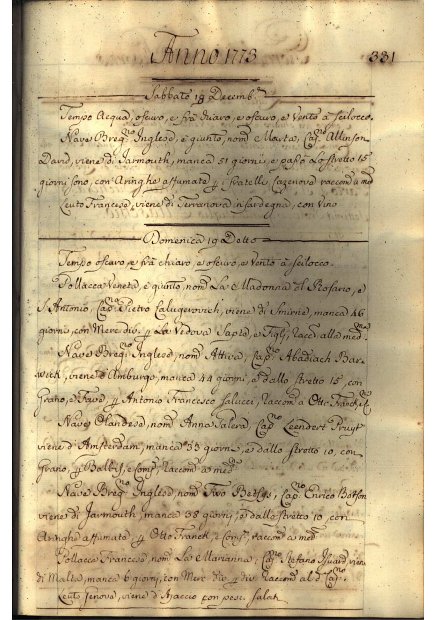 Anno 1773
331
Sabbato 18 Decemb.re
Tempo Acqua, oscuro, e frà chiaro, e oscuro, e Vento à Scilocco.
Nave Breq.no Inglesa, è giunto, nom.e Maita, Cap.no Allinson
David, viene di Jarmouth, manca 51 giorni, e passò Lo stretto 15
giorni sono, con Aringhe affumate p fratelli Cazenova raccom a med
Leuto Francese, viene di Terranova in sardegna, con Vino
Domenica 19 Detto
Tempo oscuro, e frà chiaro, e oscuro, e Vento à Scilocco.
Pollacca Veneta, è giunto, nom.a La Madonna del Rosario, e
S. Antonio, Cap.no Pietro Calugerovich, viene di Smirne, manca 46
giorni, con Merc. div. p La Vedova Sapte, e Figlj, Racc. alla med.
Nave Breq.no Inglesa, nom. Attiva, Cap.no Abadiach Bar-
wick, viene d'Amburgo, manca 44 giorni, e dallo stretto 15, con
Grano, e Fava, p Antonio Francesco Salucci, raccom a Otto Franck, e C
Nave Olandese, nom. Anna Galera, Cap.no Leendert Pruyt
viene d'Amsterdam, manca 33 giorni, e dallo stretto 10, con
Grano, p e Comp. raccom a med.
Nave Breq.no Inglesa, nom. Two Betsys, Cap.no Enrico Botson
viene di Jarmouth, manca 38 giorni, e dallo stretto 10, con
Aringhe affumate p Otto Franck, e Comp. raccom a med.
Pollacca Francesa, nom. La Marianna, Cap.no Stefano viene
di Malta, manca 6 giorni, con Merc. div. p div. raccom al d. Cap.no
Leuto Genova, viene d'Ajaccio con pesci salat.